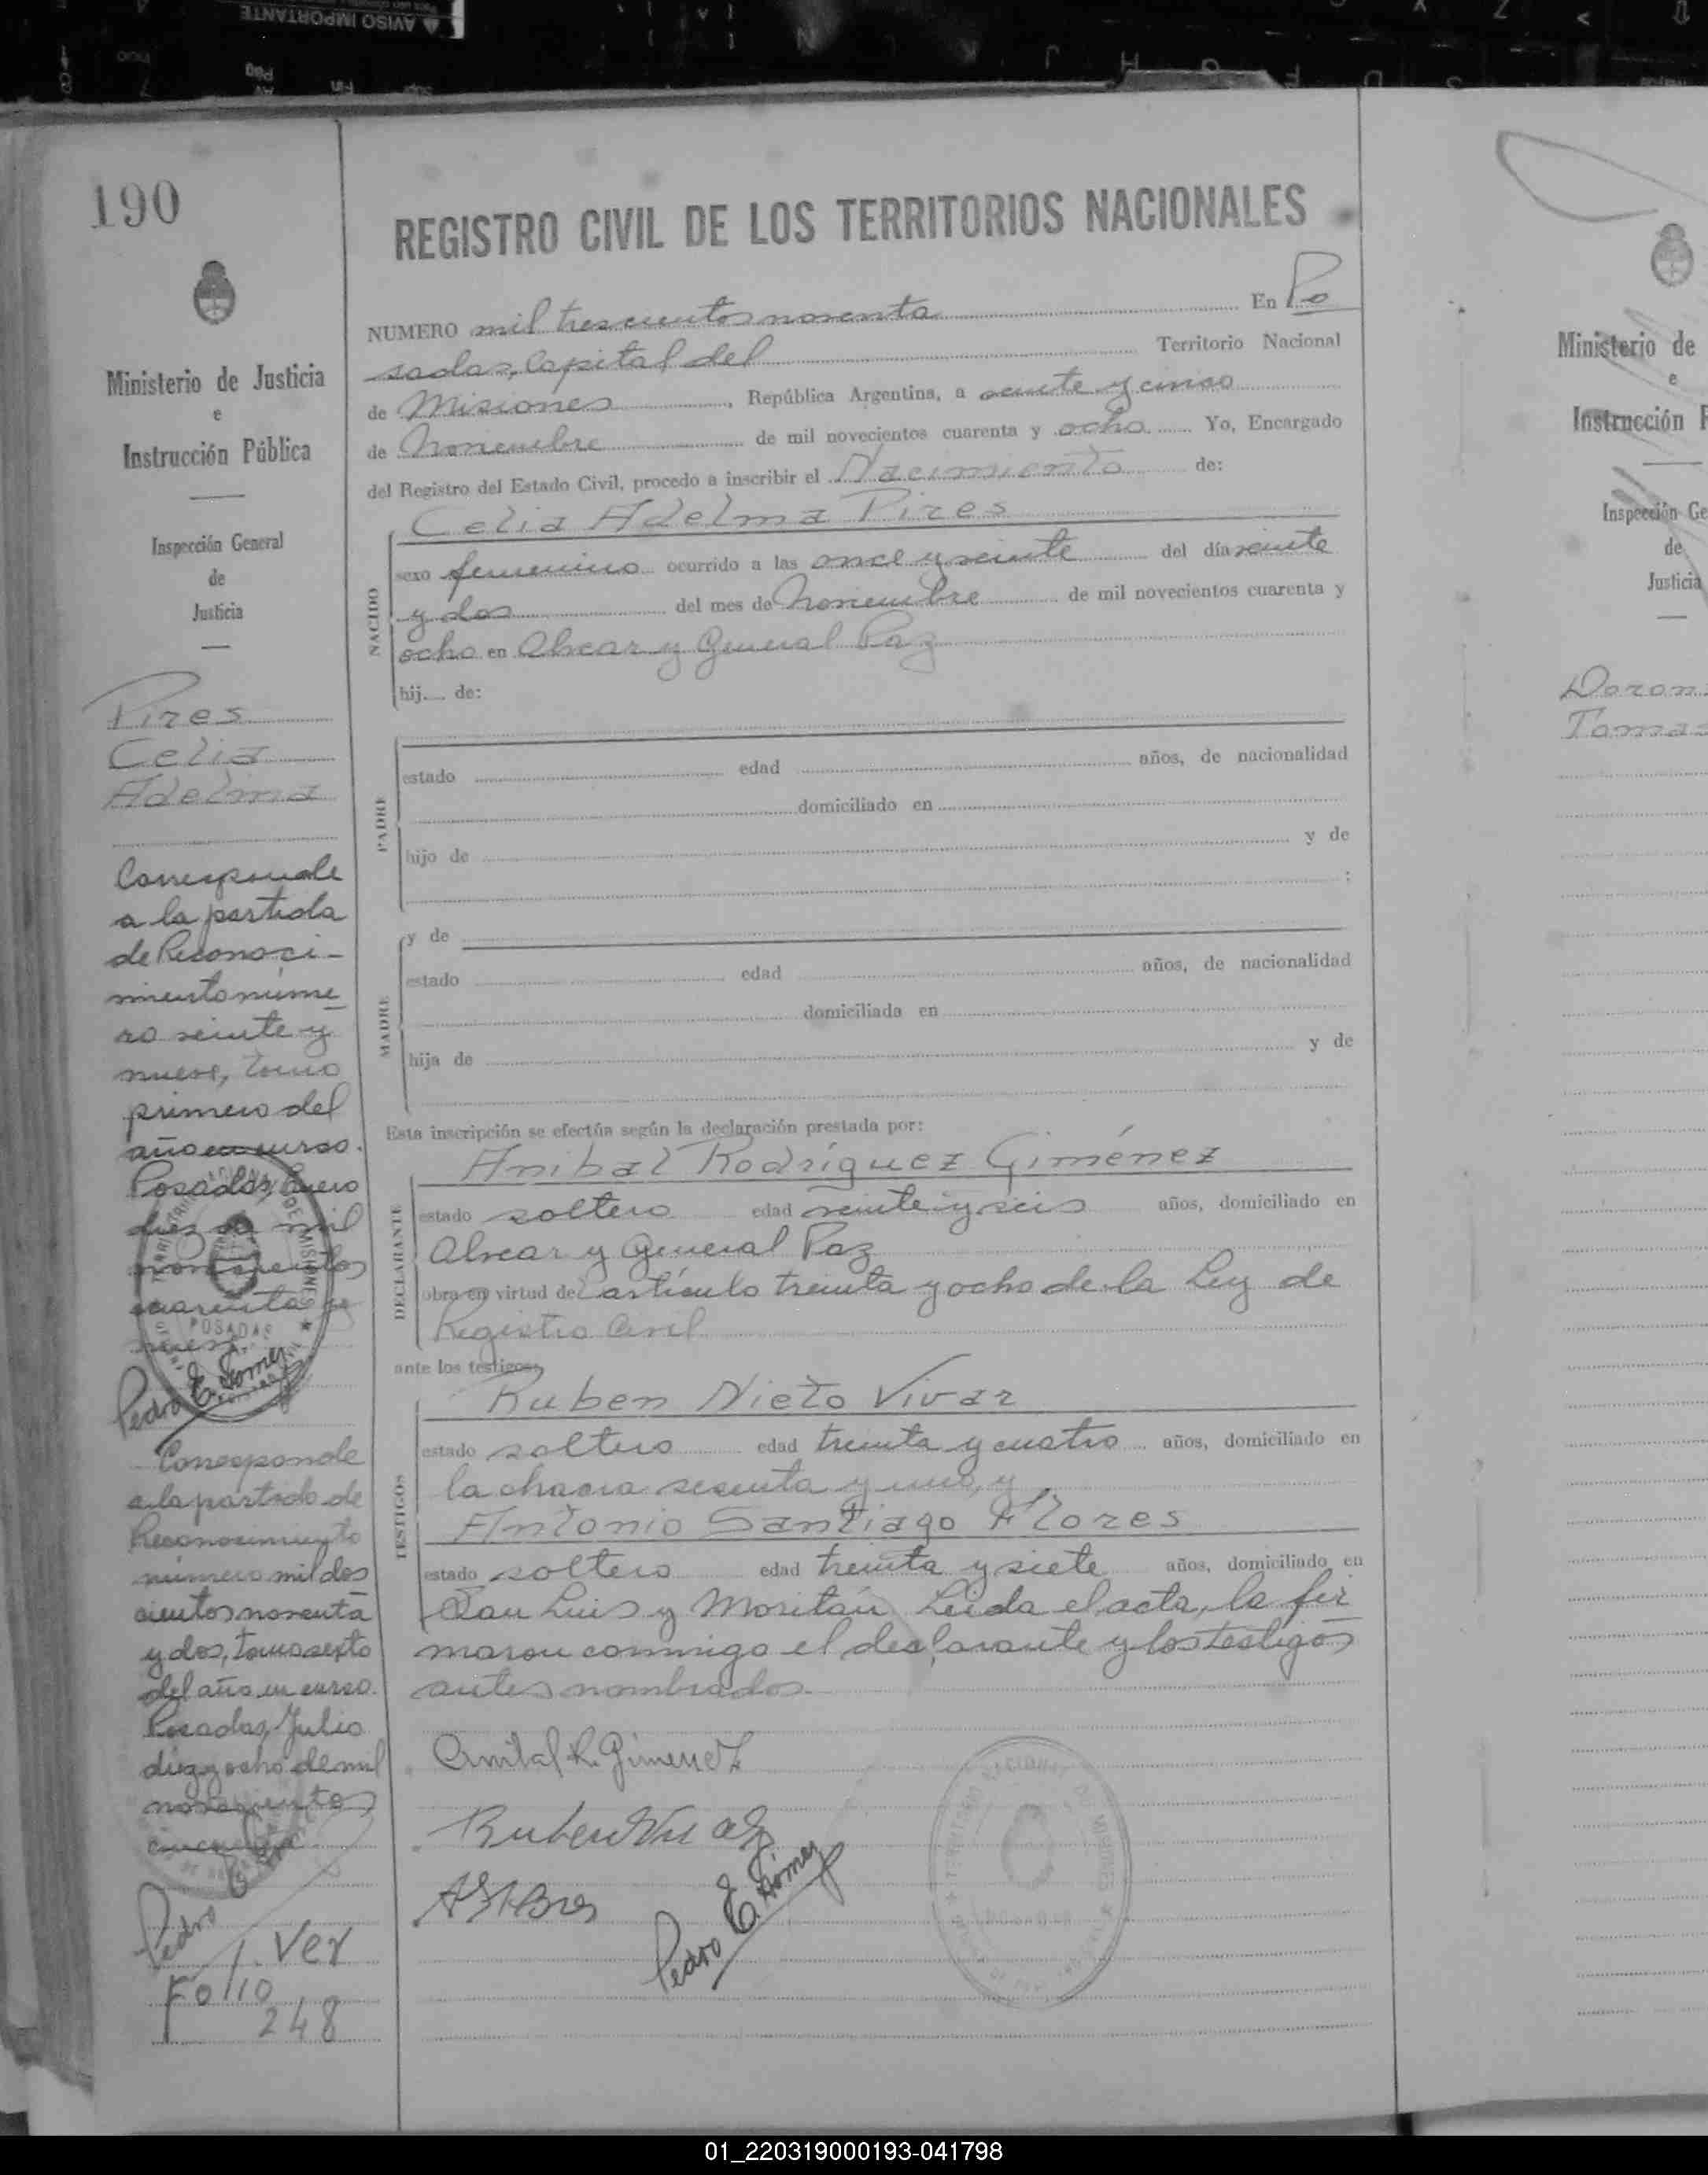 AVISO IMPORTANTE
190
REGISTRO CIVIL DE LOS TERRITORIOS NACIONALES
NUMERO mil trescientos noventa En Po
sadas, Capital del Territorio Nacional
de Misiones, República Argentina, a veinte y cinco
de Noviembre de mil novecientos cuarenta y ocho Yo, Encargado
del Registro del Estado Civil, procedo a inscribir el Nacimiento de:
Celia Adelma Pires
NACIDO
sexo femenino ocurrido a las once y veinte del día veinte
y dos del mes de Noviembre de mil novecientos cuarenta y
ocho en Alvear y General Paz
hij de:
PADRE
estado edad años, de nacionalidad
domiciliado en
hijo de y de
;
MADRE
y de
estado edad años, de nacionalidad
domiciliada en
hija de y de
Esta inscripción se efectúa según la declaración prestada por:
Anibal Rodríguez Giménez
DECLARANTE
estado soltero edad veinte y seis años, domiciliado en
Alvear y General Paz
obra en virtud del artículo treinta y ocho de la Ley de
Registro Civil
ante los testigos,
Ruben Nieto Vivar
TESTIGOS
estado soltero edad treinta y cuatro años, domiciliado en
la chacra sesenta y uno, y
Antonio Santiago Flores
estado soltero edad treinta y siete años, domiciliado en
San Luis y Moritán. Leída el acta, la fir
maron conmigo el declarante y los testigos
antes nombrados.
Anibal R. Gimenez
Pedro E. Gómez
Ministerio de Justicia
e
Instrucción Pública
Inspección General
de
Justicia
Pires
Celia
Adelma
Corresponde
a la partida
de Reconoci-
miento núme
ro veinte y
nueve, tomo
primero del
año en curso.
Posadas, Enero
diez de mil
novecientos
cuarenta y
nueve.
POSADAS
Pedro E. Gómez
Corresponde
a la partida de
Reconocimiento
número mil dos
cientos noventa
y dos, tomo sexto
del año en curso.
Posadas, Julio
diez y ocho de mil
novecientos
cincuenta
Pedro
Ver
Folio
248
Ministerio de
e
Instrucción P
Inspección Ge
de
Justicia
Doron
Tomas
01_220319000193-041798